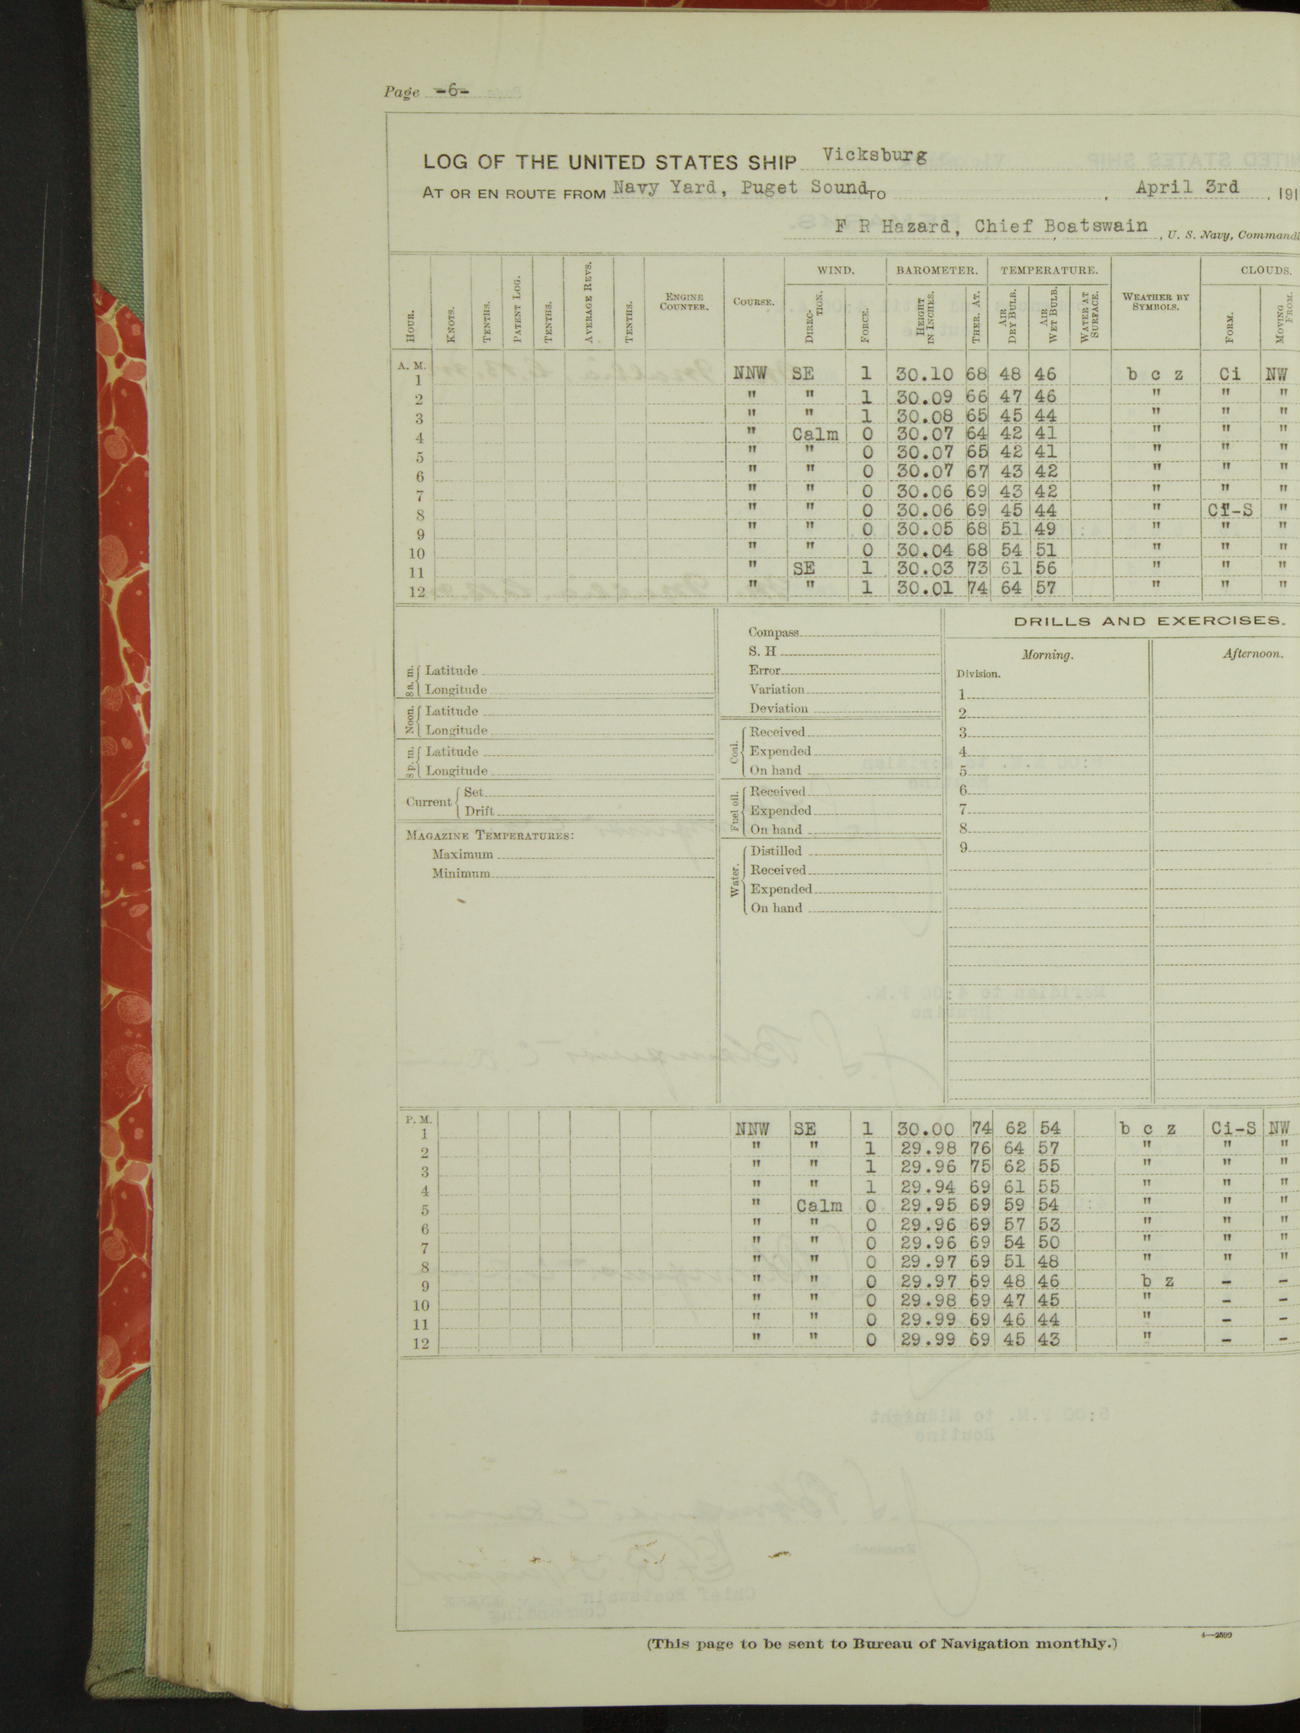 Page -6-
LOG OF THE UNITED STATES SHIP Vicksburg
AT OR EN ROUTE FROM Navy Yard, Puget Sound TO , April 3rd , 191
F R Hazard, Chief Boatswain , U. S. Navy, Commandi
HOUR. KNOTS. TENTHS. PATENT LOG. TENTHS. AVERAGE REVS. TENTHS. ENGINE COUNTER. COURSE. WIND. DIRECTION. FORCE. BAROMETER. HEIGHT IN INCHES. THER. AT. TEMPERATURE. AIR DRY BULB. AIR WET BULB. WATER AT SURFACE. WEATHER BY SYMBOLS. CLOUDS. FORM. MOVING FROM.
A. M.
1 NNW SE 1 30.10 68 48 46 b c z Ci NW
2 " " 1 30.09 66 47 46 " " "
3 " " 1 30.08 65 45 44 " " "
4 " Calm 0 30.07 64 42 41 " " "
5 " " 0 30.07 65 42 41 " " "
6 " " 0 30.07 67 43 42 " " "
7 " " 0 30.06 69 43 42 " " "
8 " " 0 30.06 69 45 44 " Ci-S "
9 " " 0 30.05 68 51 49 " " "
10 " " 0 30.04 68 54 51 " " "
11 " SE 1 30.03 73 61 56 " " "
12 " " 1 30.01 74 64 57 " " "
8 a. m. Latitude
Longitude
Noon. Latitude
Longitude
8 p. m. Latitude
Longitude
Current Set
Drift
MAGAZINE TEMPERATURES:
Maximum
Minimum
Compass
S. H
Error
Variation
Deviation
Coal. Received
Expended
On hand
Fuel oil. Received
Expended
On hand
Water. Distilled
Received
Expended
On hand
DRILLS AND EXERCISES.
Morning. Afternoon.
Division.
1
2
3
4
5
6
7
8
9
P. M.
1 NNW SE 1 30.00 74 62 54 b c z Ci-S NW
2 " " 1 29.98 76 64 57 " " "
3 " " 1 29.96 75 62 55 " " "
4 " " 1 29.94 69 61 55 " " "
5 " Calm 0 29.95 69 59 54 " " "
6 " " 0 29.96 69 57 53 " " "
7 " " 0 29.96 69 54 50 " " "
8 " " 0 29.97 69 51 48 " " "
9 " " 0 29.97 69 48 46 b z - -
10 " " 0 29.98 69 47 45 " - -
11 " " 0 29.99 69 46 44 " - -
12 " " 0 29.99 69 45 43 " - -
(This page to be sent to Bureau of Navigation monthly.)